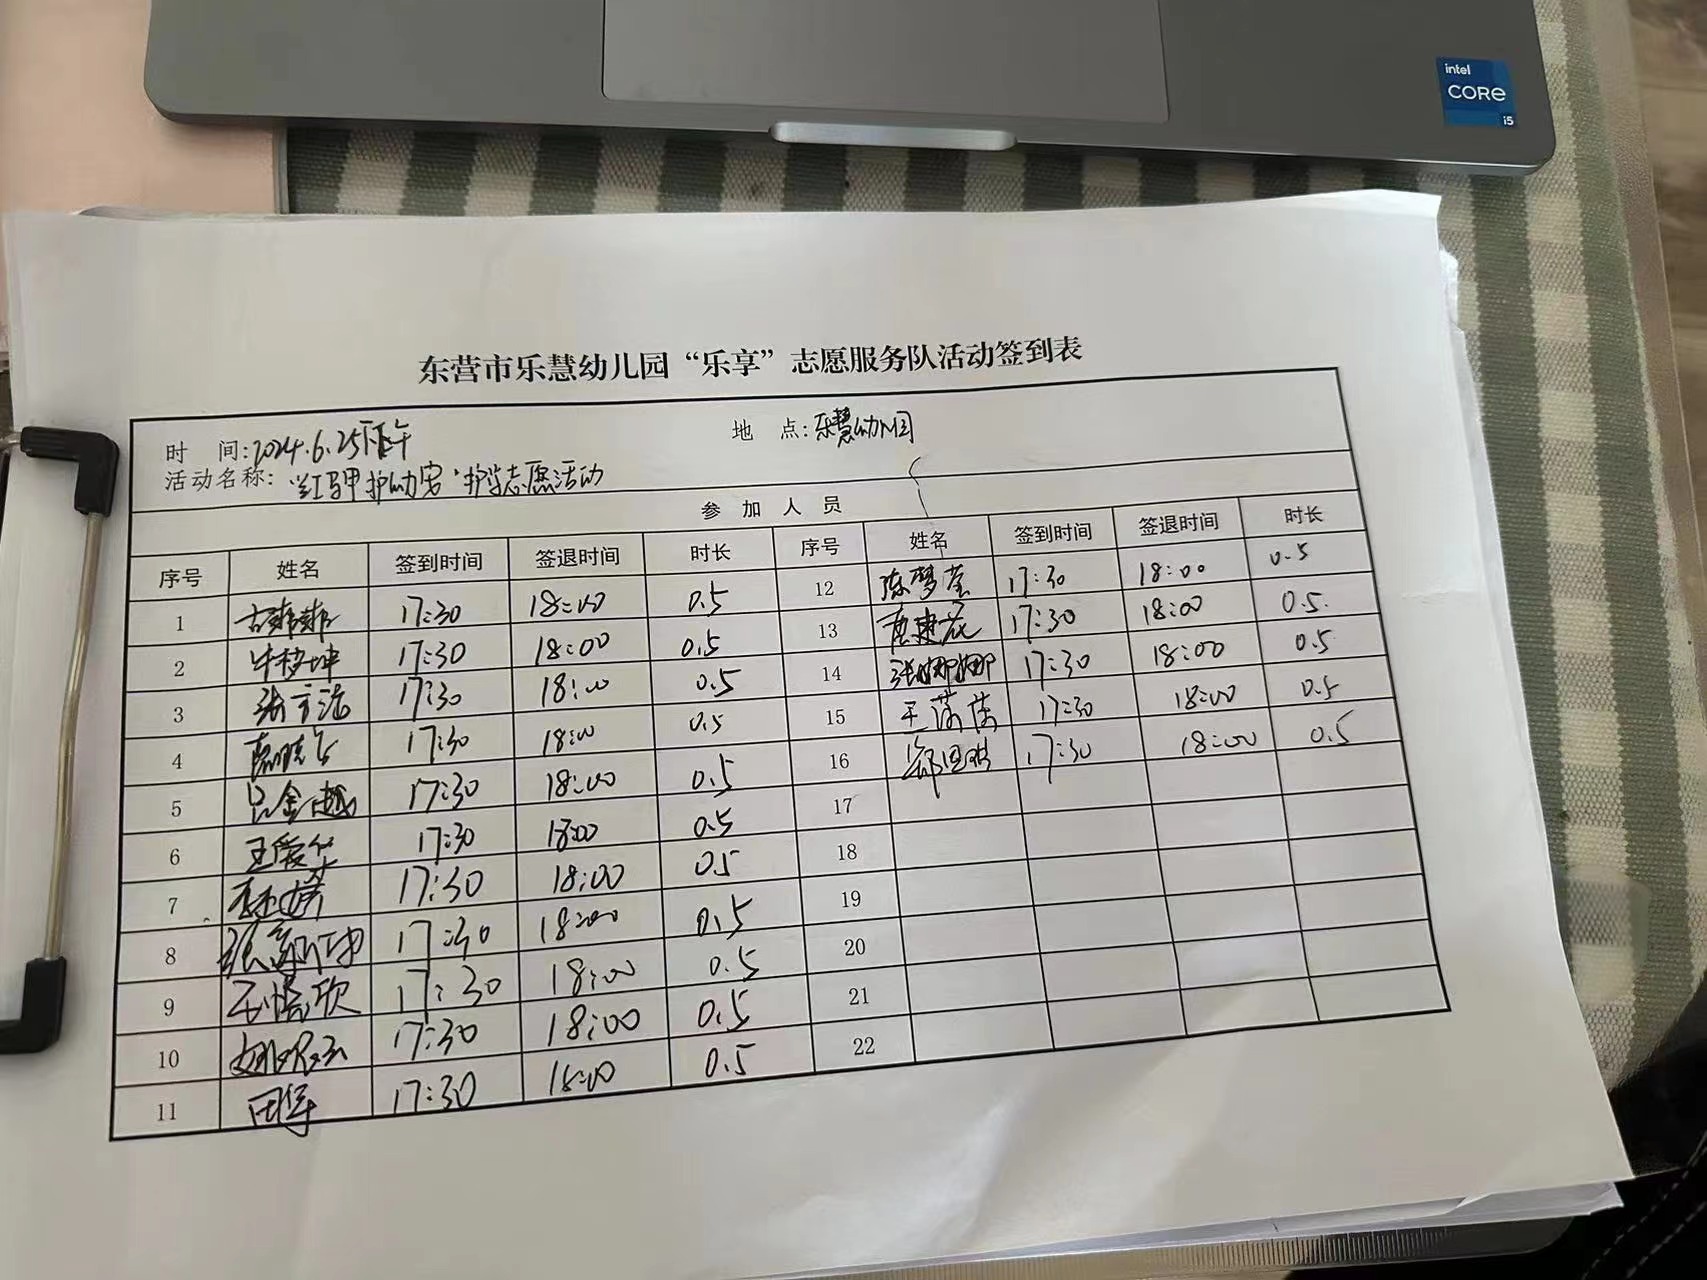 intel
CORE
i5
东营市乐慧幼儿园“乐享”志愿服务队活动签到表
时 间:2024.6.25下午 地 点:乐慧幼儿园
活动名称:“红马甲护幼安”护学志愿活动
参 加 人 员
序号 姓名 签到时间 签退时间 时长 序号 姓名 签到时间 签退时间 时长
1 17:30 18:00 0.5 12 陈梦莹 17:30 18:00 0.5
2 17:30 18:00 0.5 13 17:30 18:00 0.5
3 17:30 18:00 0.5 14 张娜娜 17:30 18:00 0.5
4 17:30 18:00 0.5 15 王 17:30 18:00 0.5
5 吕金 17:30 18:00 0.5 16 17:30 18:00 0.5
6 王爱华 17:30 18:00 0.5 17
7 17:30 18:00 0.5 18
8 17:30 18:00 0.5 19
9 17:30 18:00 0.5 20
10 17:30 18:00 0.5 21
11 田军 17:30 18:00 0.5 22